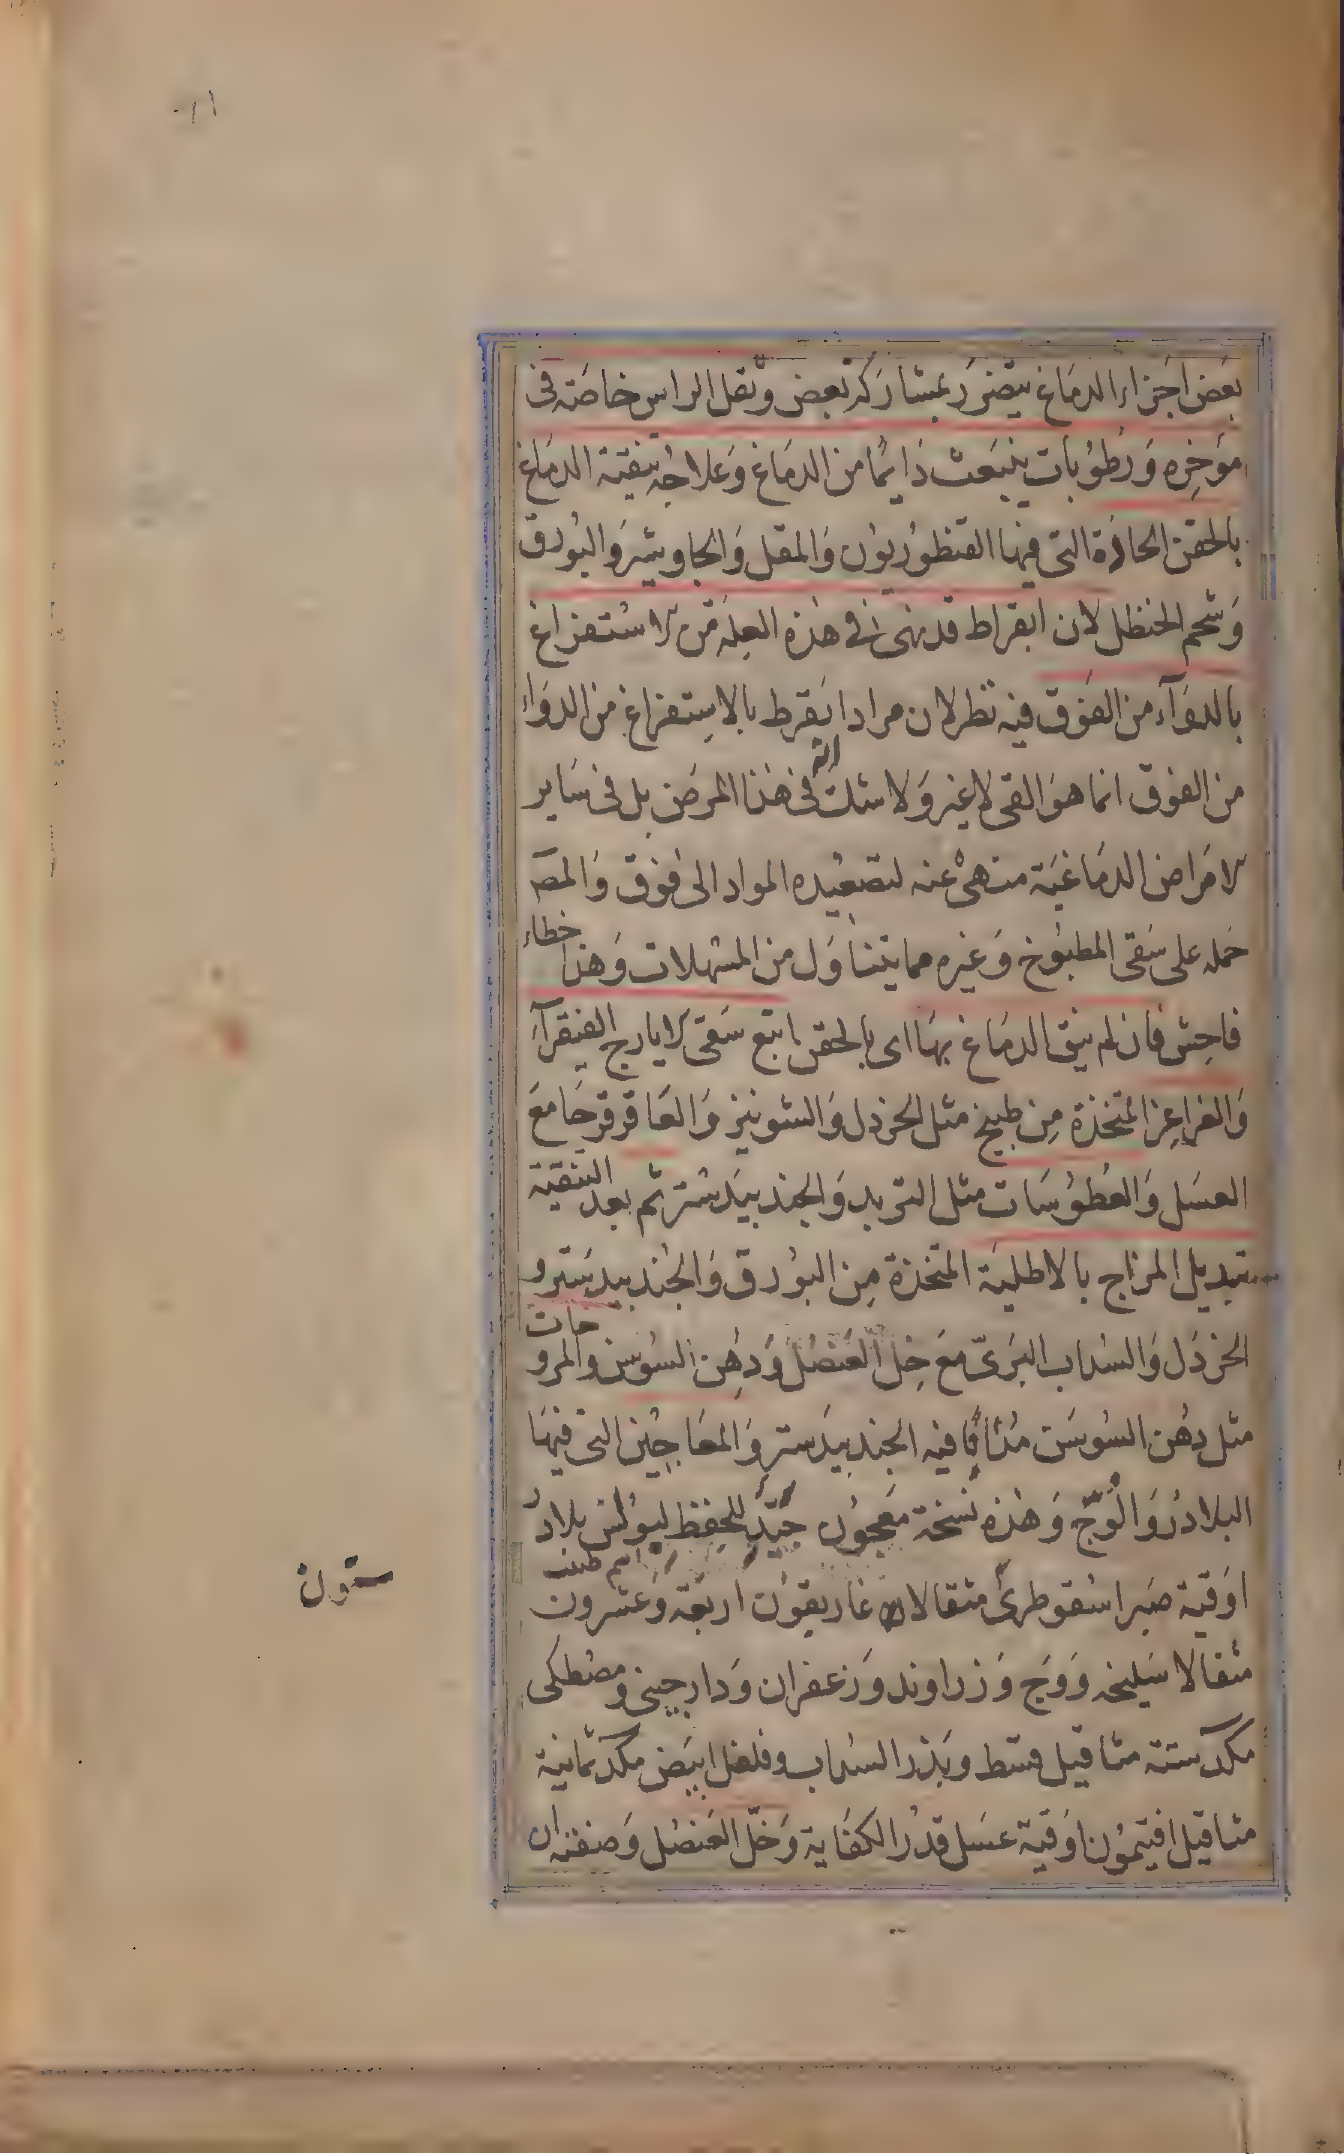 بعض اجزاء الدماغ يتضرر بمشاركة بعض وثقل الراس خاصة فى
موخره ورطوبات ينبعث دايما من الدماغ وعلاجه بتنقية الدماغ
بالحقن الحادة التى فيها القنطوريون والمقل والجاوشير والبورق
وشحم الحنظل لان ابقراط قد نهى فى هذه العلة من الاستفراغ
بالدواء من الفوق فيه نظر لان مراد ابقرط بالاستفراغ من الدواء
من الفوق انما هو القى لا غير ولا شك انه فى هذا المرض بل فى ساير
الامراض الدماغية منهى عنه لتصعيده المواد الى فوق والمصـ
حمله على سقى المطبوخ وغيره مما يتناول من المسهلات وهذا خطاء
فاحش فان لم ينق الدماغ بها اى بالحقن اتبع سقى الايارج الفيقرا
والغراغر المتخذة من طبيخ مثل الخردل والشونيز والعاقرقرحا مع
العسل والعطوسات مثل التربد والجندبيدستر ثم بعد التنقية
تبديل المزاج بالاطلية المتخذة من البورق والجندبيدستر و
الخردل والسداب البرى مع خل العنصل ودهن السوسن والمروحات
مثل دهن السوسن مذابا فيه الجندبيدستر والمعاجين التى فيها
البلادر والوج وهذه نسخة معجون جيد للحفظ لبولس بلادر
اسم طبيب
اوقية صبر اسقوطرى مثقالا غاريقون اربعة وعشرون
ستون
مثقالا سليخه ووج وزراوند وزعفران ودارچينى ومصطكى
مكد ستة مثاقيل قسط وبذر السداب وفلفل ابيض مكد ثمانية
مثاقيل افتيمون اوقية عسل قدر الكفاية وخل العنصل وصنعته ان